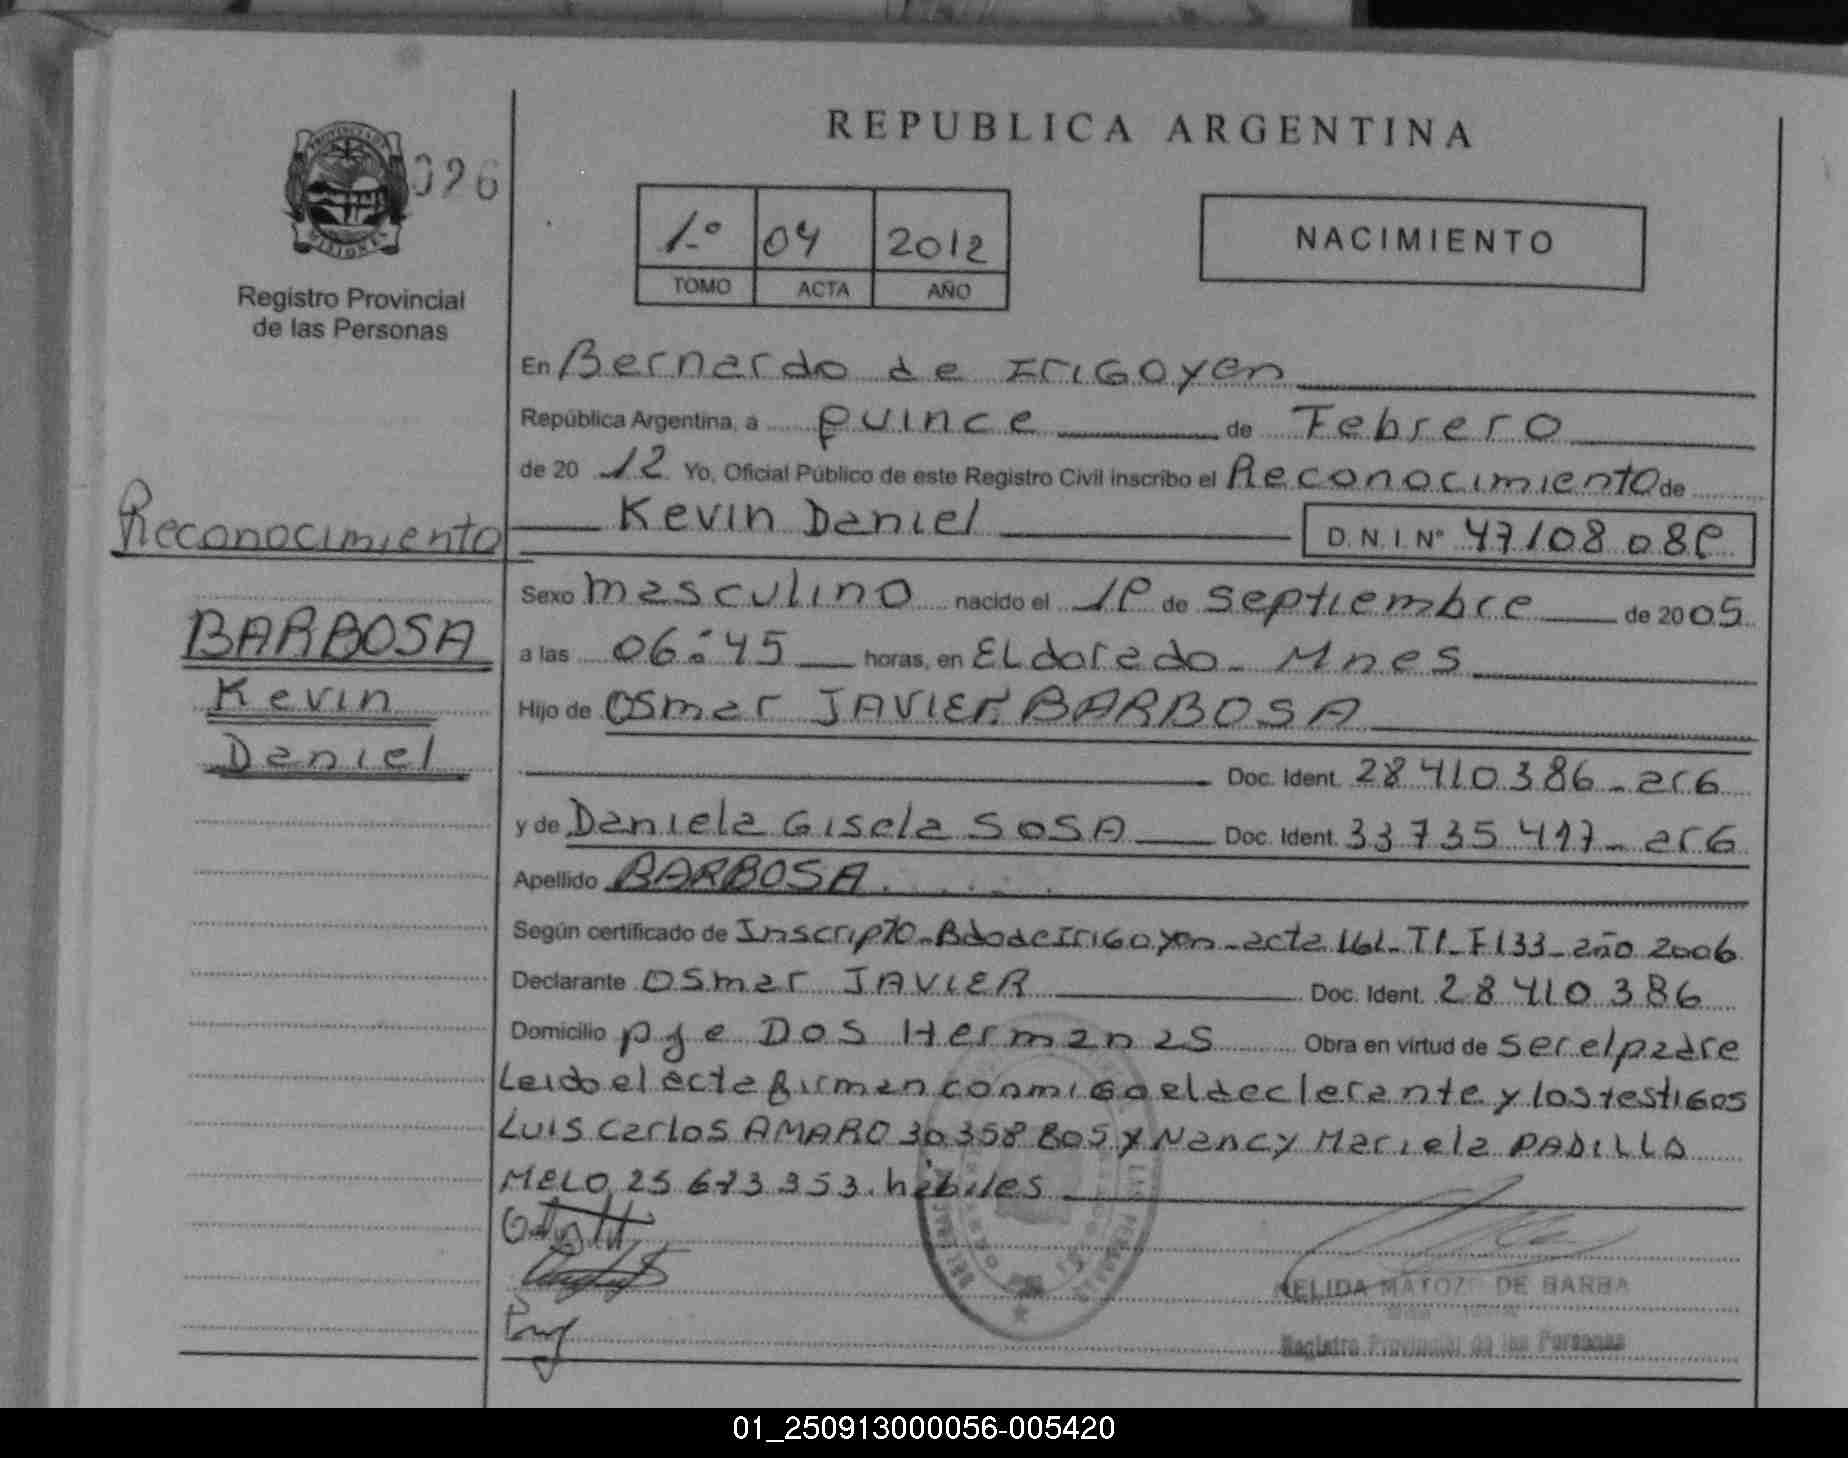 REPUBLICA ARGENTINA
026
1.º 04 2012
TOMO ACTA AÑO
NACIMIENTO
Registro Provincial
de las Personas
En Bernardo de Irigoyen
República Argentina, a quince de Febrero
de 20 12 Yo, Oficial Público de este Registro Civil inscribo el Reconocimiento de
Kevin Daniel D.N.I. Nº 47108 08
Reconocimiento
BARBOSA
Kevin
Daniel
Sexo masculino nacido el de septiembre de 2005
a las 06:45 horas, en Eldorado - Mnes
Hijo de Osmar JAVIER BARBOSA
Doc. Ident. 28 410 386 - arG
y de Daniela Gisela SOSA Doc. Ident. 33 735 - arG
Apellido BARBOSA
Según certificado de Inscripto - Bdo de Irigoyen - acta 161 - T1 - F133 - año 2006
Declarante Osmar JAVIER Doc. Ident. 28 410 386
Domicilio pje Dos Hermanas Obra en virtud de ser el padre
Leido el acta firman conmigo el declarante y los testigos
Luis Carlos AMARO 30 358 805 y Nancy Mariela PADILLA
MELO 25 673 353. hábiles
NELIDA MATOZO DE BARBA
Registro Provincial de las Personas
01_250913000056-005420